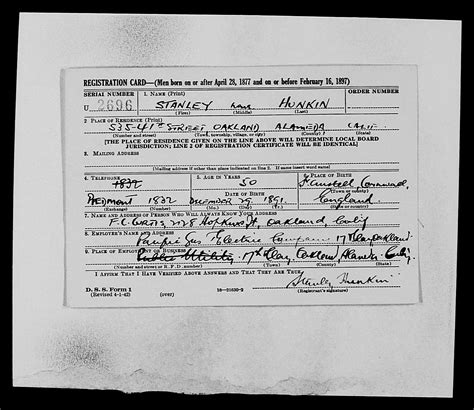 REGISTRATION CARD—(Men born on or after April 28, 1877 and on or before February 16, 1897)
SERIAL NUMBER 1. NAME (Print) ORDER NUMBER
U 2696 STANLEY HUNKIN
(First) (Middle) (Last)
2. PLACE OF RESIDENCE (Print)
535-41st STREET OAKLAND ALAMEDA CALIF
(Number and street) (Town, township, village, or city) (County) (State)
[THE PLACE OF RESIDENCE GIVEN ON THE LINE ABOVE WILL DETERMINE LOCAL BOARD
JURISDICTION; LINE 2 OF REGISTRATION CERTIFICATE WILL BE IDENTICAL]
3. MAILING ADDRESS
[Mailing address if other than place indicated on line 2. If same insert word same]
4. TELEPHONE 5. AGE IN YEARS 6. PLACE OF BIRTH
1832 50 Cornwall,
DATE OF BIRTH (Town or county)
PIEDMONT 1832 DECEMBER 29, 1891. England
(Exchange) (Number) (Mo.) (Day) (Yr.) (State or country)
7. NAME AND ADDRESS OF PERSON WHO WILL ALWAYS KNOW YOUR ADDRESS
Oakland, Calif
8. EMPLOYER'S NAME AND ADDRESS
Pacific Gas Electric Company 17th Clay Oakland
9. PLACE OF EMPLOYMENT OR BUSINESS
Public Utility. 17th Clay, Oakland, Calif.
(Number and street or R. F. D. number) (Town) (County) (State)
I AFFIRM THAT I HAVE VERIFIED ABOVE ANSWERS AND THAT THEY ARE TRUE.
Stanley Hunkin
D. S. S. Form 1
(Revised 4-1-42) (over) 16—21630-2 (Registrant's signature)